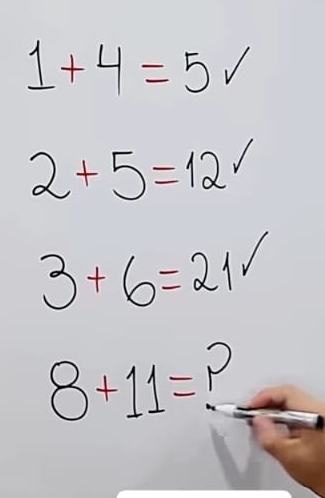 1+4=5✓
2+5=12✓
3+6=21✓
8+11=?